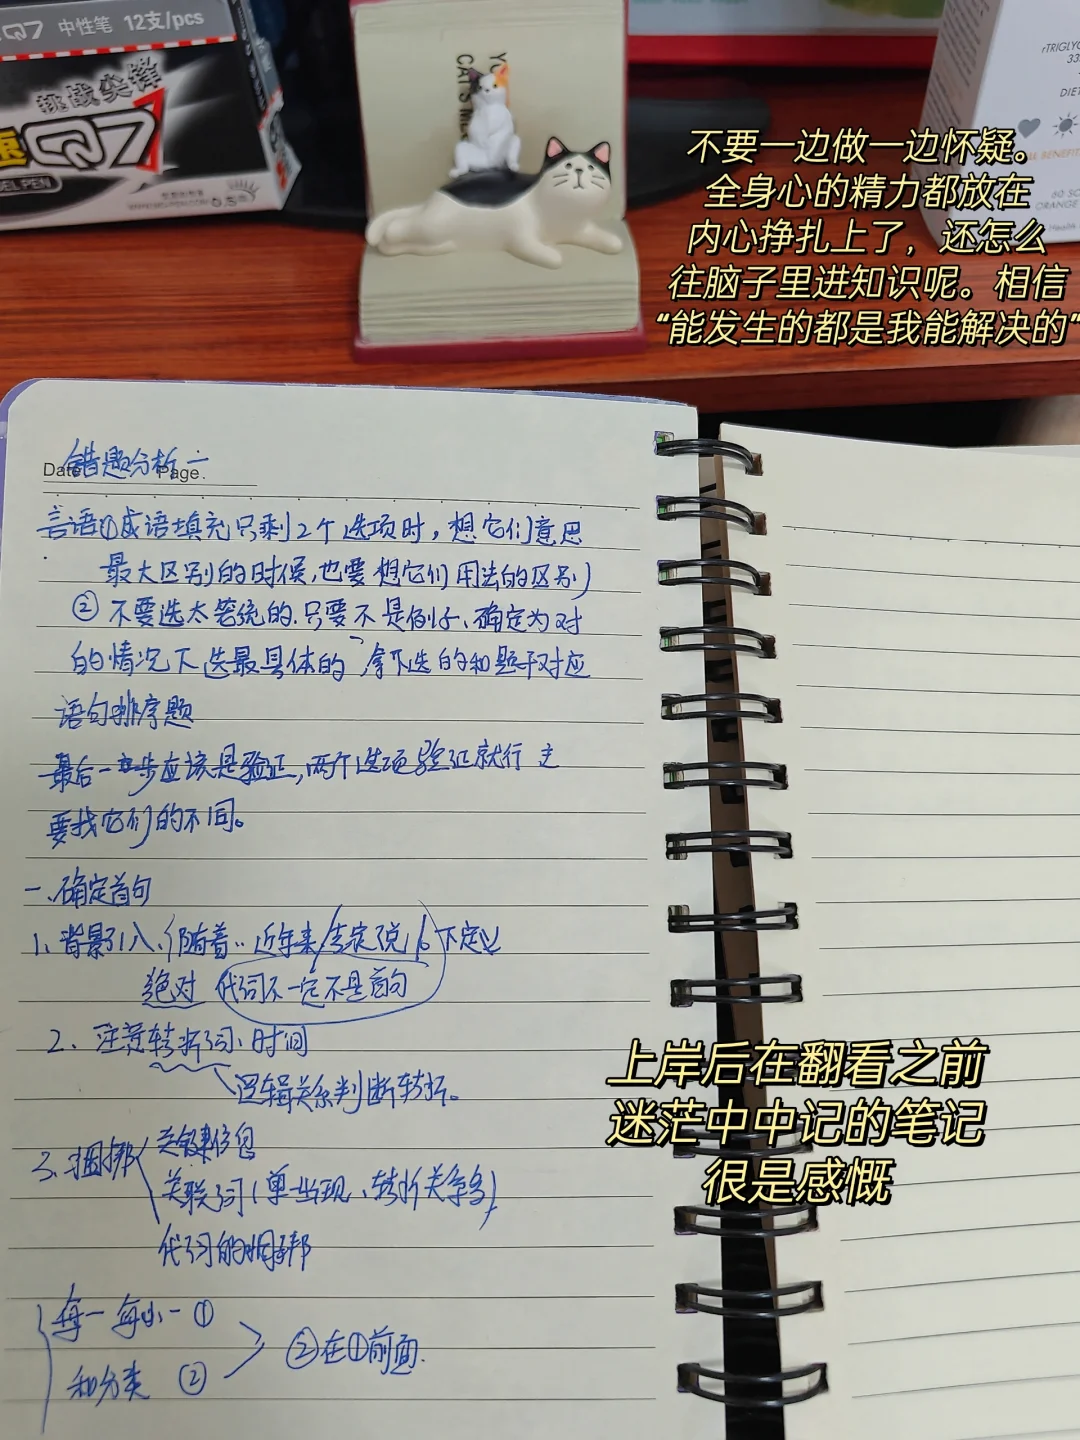 Q7 中性笔 12支/pcs
挑战尖锋
速Q7
GEL PEN
0.5
YO
CAT'S ME
rTRIGLY
33
DIET
ALL BENEFIT
60 SO
ORANGE
Health
不要一边做一边怀疑。
全身心的精力都放在
内心挣扎上了，还怎么
往脑子里进知识呢。相信
“能发生的都是我能解决的”
Date
Page.
错题分析一
言语①成语填充只剩2个选项时，想它们意思
最大区别的时候,也要想它们用法的区别)
②不要选太笼统的.只要不是例子、确定为对
的情况下选最具体的 拿下选的和题干对应
语句排序题
最后一步应该是验证,两个选项验证就行 主
要找它们的不同。
一、确定首句
1、背景引入、(随着..近年来/ 下定义
绝对 代词不一定不是首句
2、注意转折词、时间
逻辑关系判断转折。
3、捆绑 关键信息
关联词(单一出现、转折关系多)
代词的捆绑
每一 每小一 ①
和分类 ②
②在①前面.
上岸后在翻看之前
迷茫中中记的笔记
很是感慨